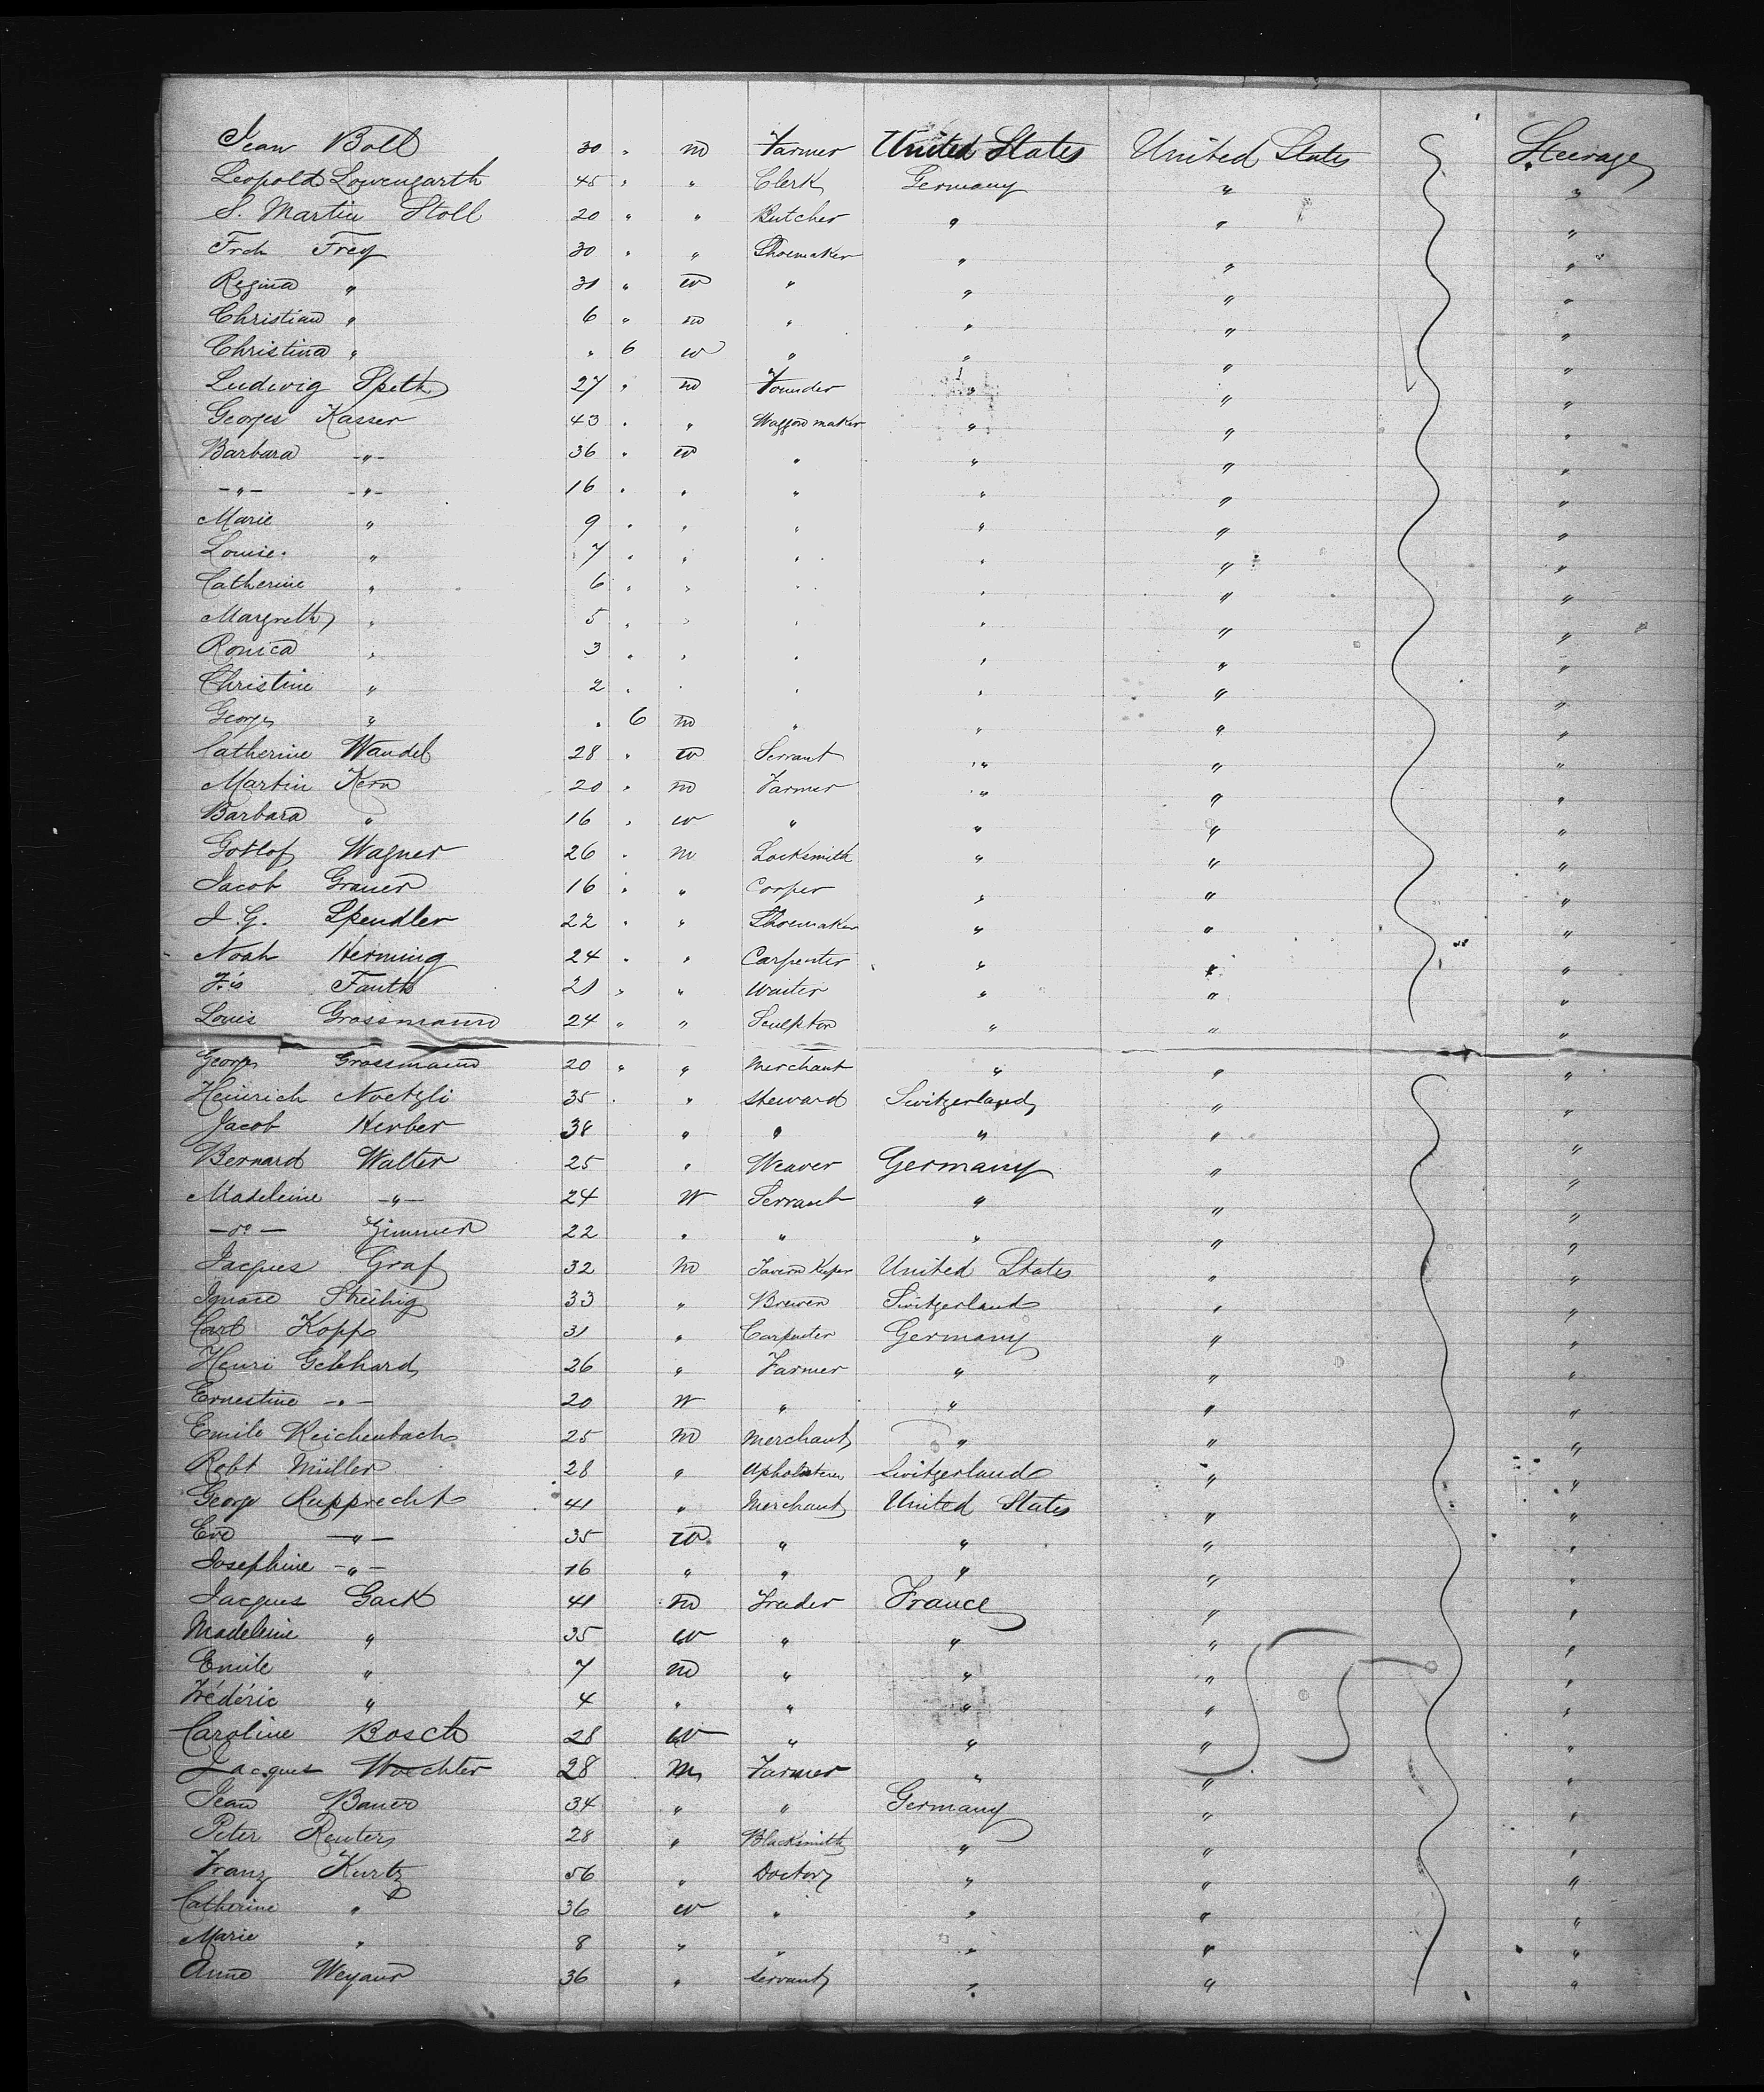 Jean Boll 30 " m Farmer United States United States Steerage
Leopold Lowengarth 45 " " Clerk Germany " "
S. Martin Stoll 20 " " Butcher " " "
Frch Frey 30 " " Shoemaker " " "
Regina " 31 " w " " " "
Christian " 6 " m " " " "
Christina " " 6 w " " " "
Ludwig Speth 27 " m Founder " " "
Georges Kasser 43 " " Waggon maker " " "
Barbara -"- 36 " w " " " "
-"- -"- 16 " " " " " "
Marie " 9 " " " " " "
Louise " 7 " " " " " "
Catherine " 6 " " " " " "
Margreth " 5 " " " " " "
Ronica " 3 " " " " " "
Christine " 2 " " " " " "
George " " 6 m " " " "
Catherine Wandel 28 " w Servant " " "
Martin Kern 20 " m Farmer " " "
Barbara " 16 " w " " " "
Gotlof Wagner 26 " m Locksmith " " "
Jacob Grauer 16 " " Cooper " " "
J. G. Spendler 22 " " Shoemaker " " "
Noah Herming 24 " " Carpenter " " "
F.is Fauth 21 " " Waiter " " "
Louis Grossmann 24 " " Sculptor " " "
George Grossmann 20 " " Merchant " " "
Heinrich Noetzli 35 " Steward Switzerland " "
Jacob Herber 38 " " " " "
Bernard Walter 25 " Weaver Germany " "
Madeleine -"- 24 W Servant " " "
-do- Zimmer 22 " " " " "
Jacques Graf 32 m Tavern Keper United States " "
Ignace Streibig 33 " Brewer Switzerland " "
Carl Kopp 31 " Carpenter Germany " "
Henri Gebhard 26 " Farmer " " "
Ernestine -"- 20 W " " " "
Emile Reichenbach 25 m Merchant " " "
Robt Müller 28 " Upholsterer Switzerland " "
George Rupprecht 41 " Merchant United States " "
Eve -"- 35 w " " " "
Josephine -"- 16 " " " " "
Jacques Gack 41 m Trader France " "
Madeleine " 35 w " " " "
Emile " 7 m " " " "
Frédéric " 4 " " " " "
Caroline Bosch 28 w " " " "
Jacques Woechter 28 m Farmer " " "
Jean Bauer 34 " " Germany " "
Peter Reuter 28 " Blacksmith " " "
Franz Kurtz 56 " Doctor " " "
Catherine " 36 w " " " "
Marie " 8 " " " " "
Anne Weyaur 36 " Servant " " "
55